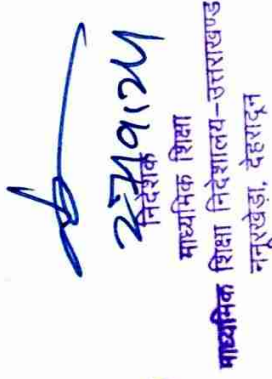 निदेशक
माध्यमिक शिक्षा
माध्यमिक शिक्षा निदेशालय-उत्तराखण्ड
ननूरखेड़ा, देहरादून